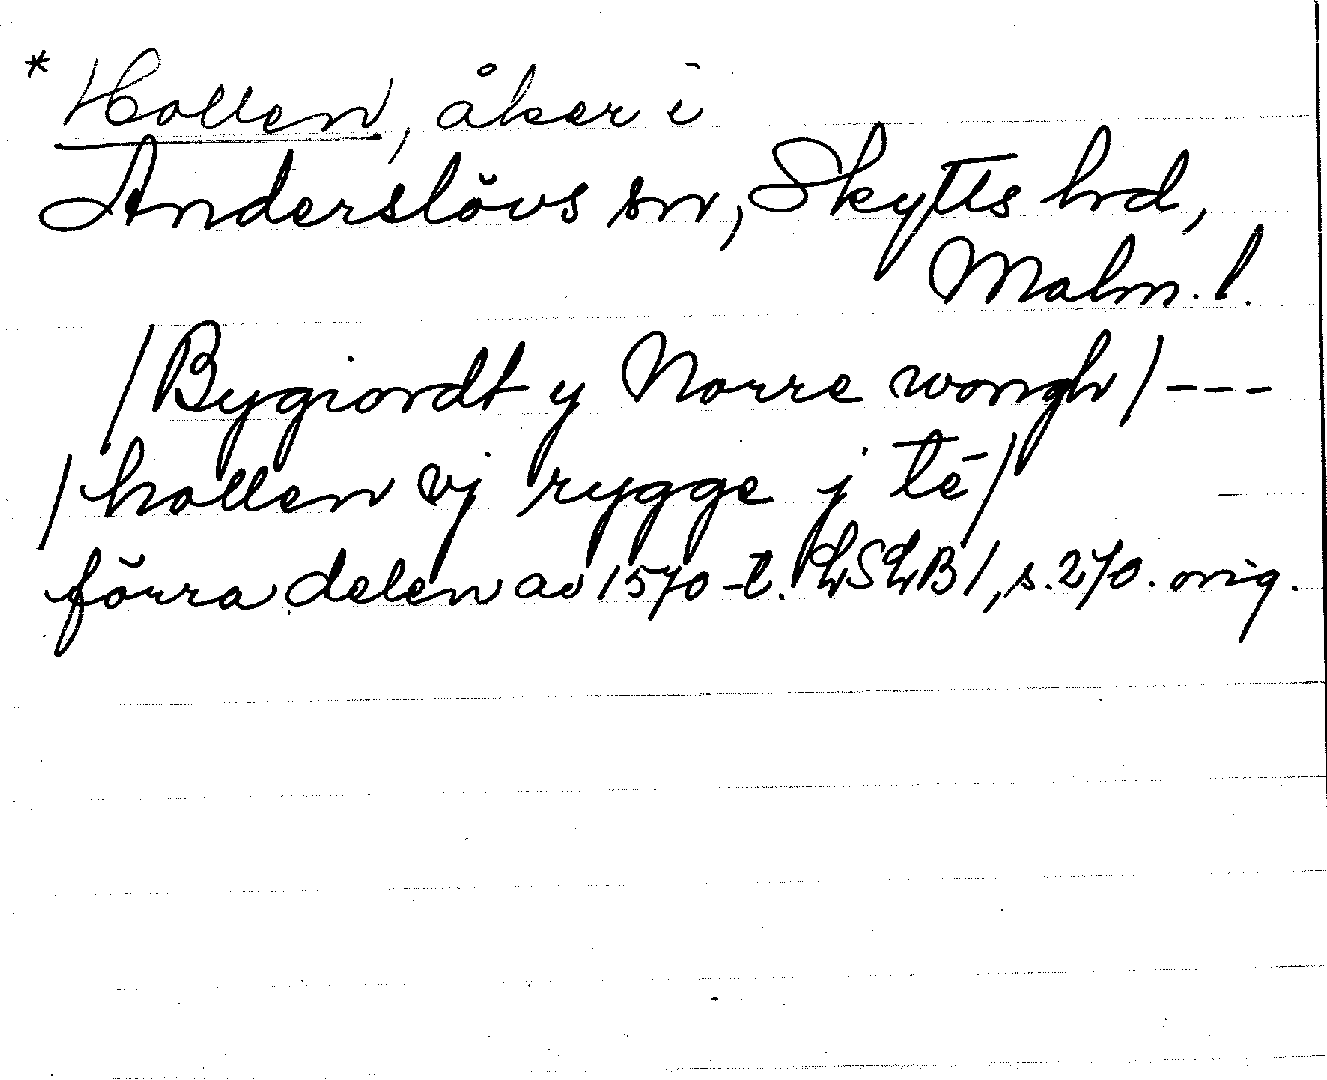 * Hollen, åker i
Anderslövs sn, Skytts hd,
Malm. l.
/Bygiordt y Norre wongh/---
/hollen vj rygge j té/
förra delen av 1570-t. LSLB 1, s. 270. orig.